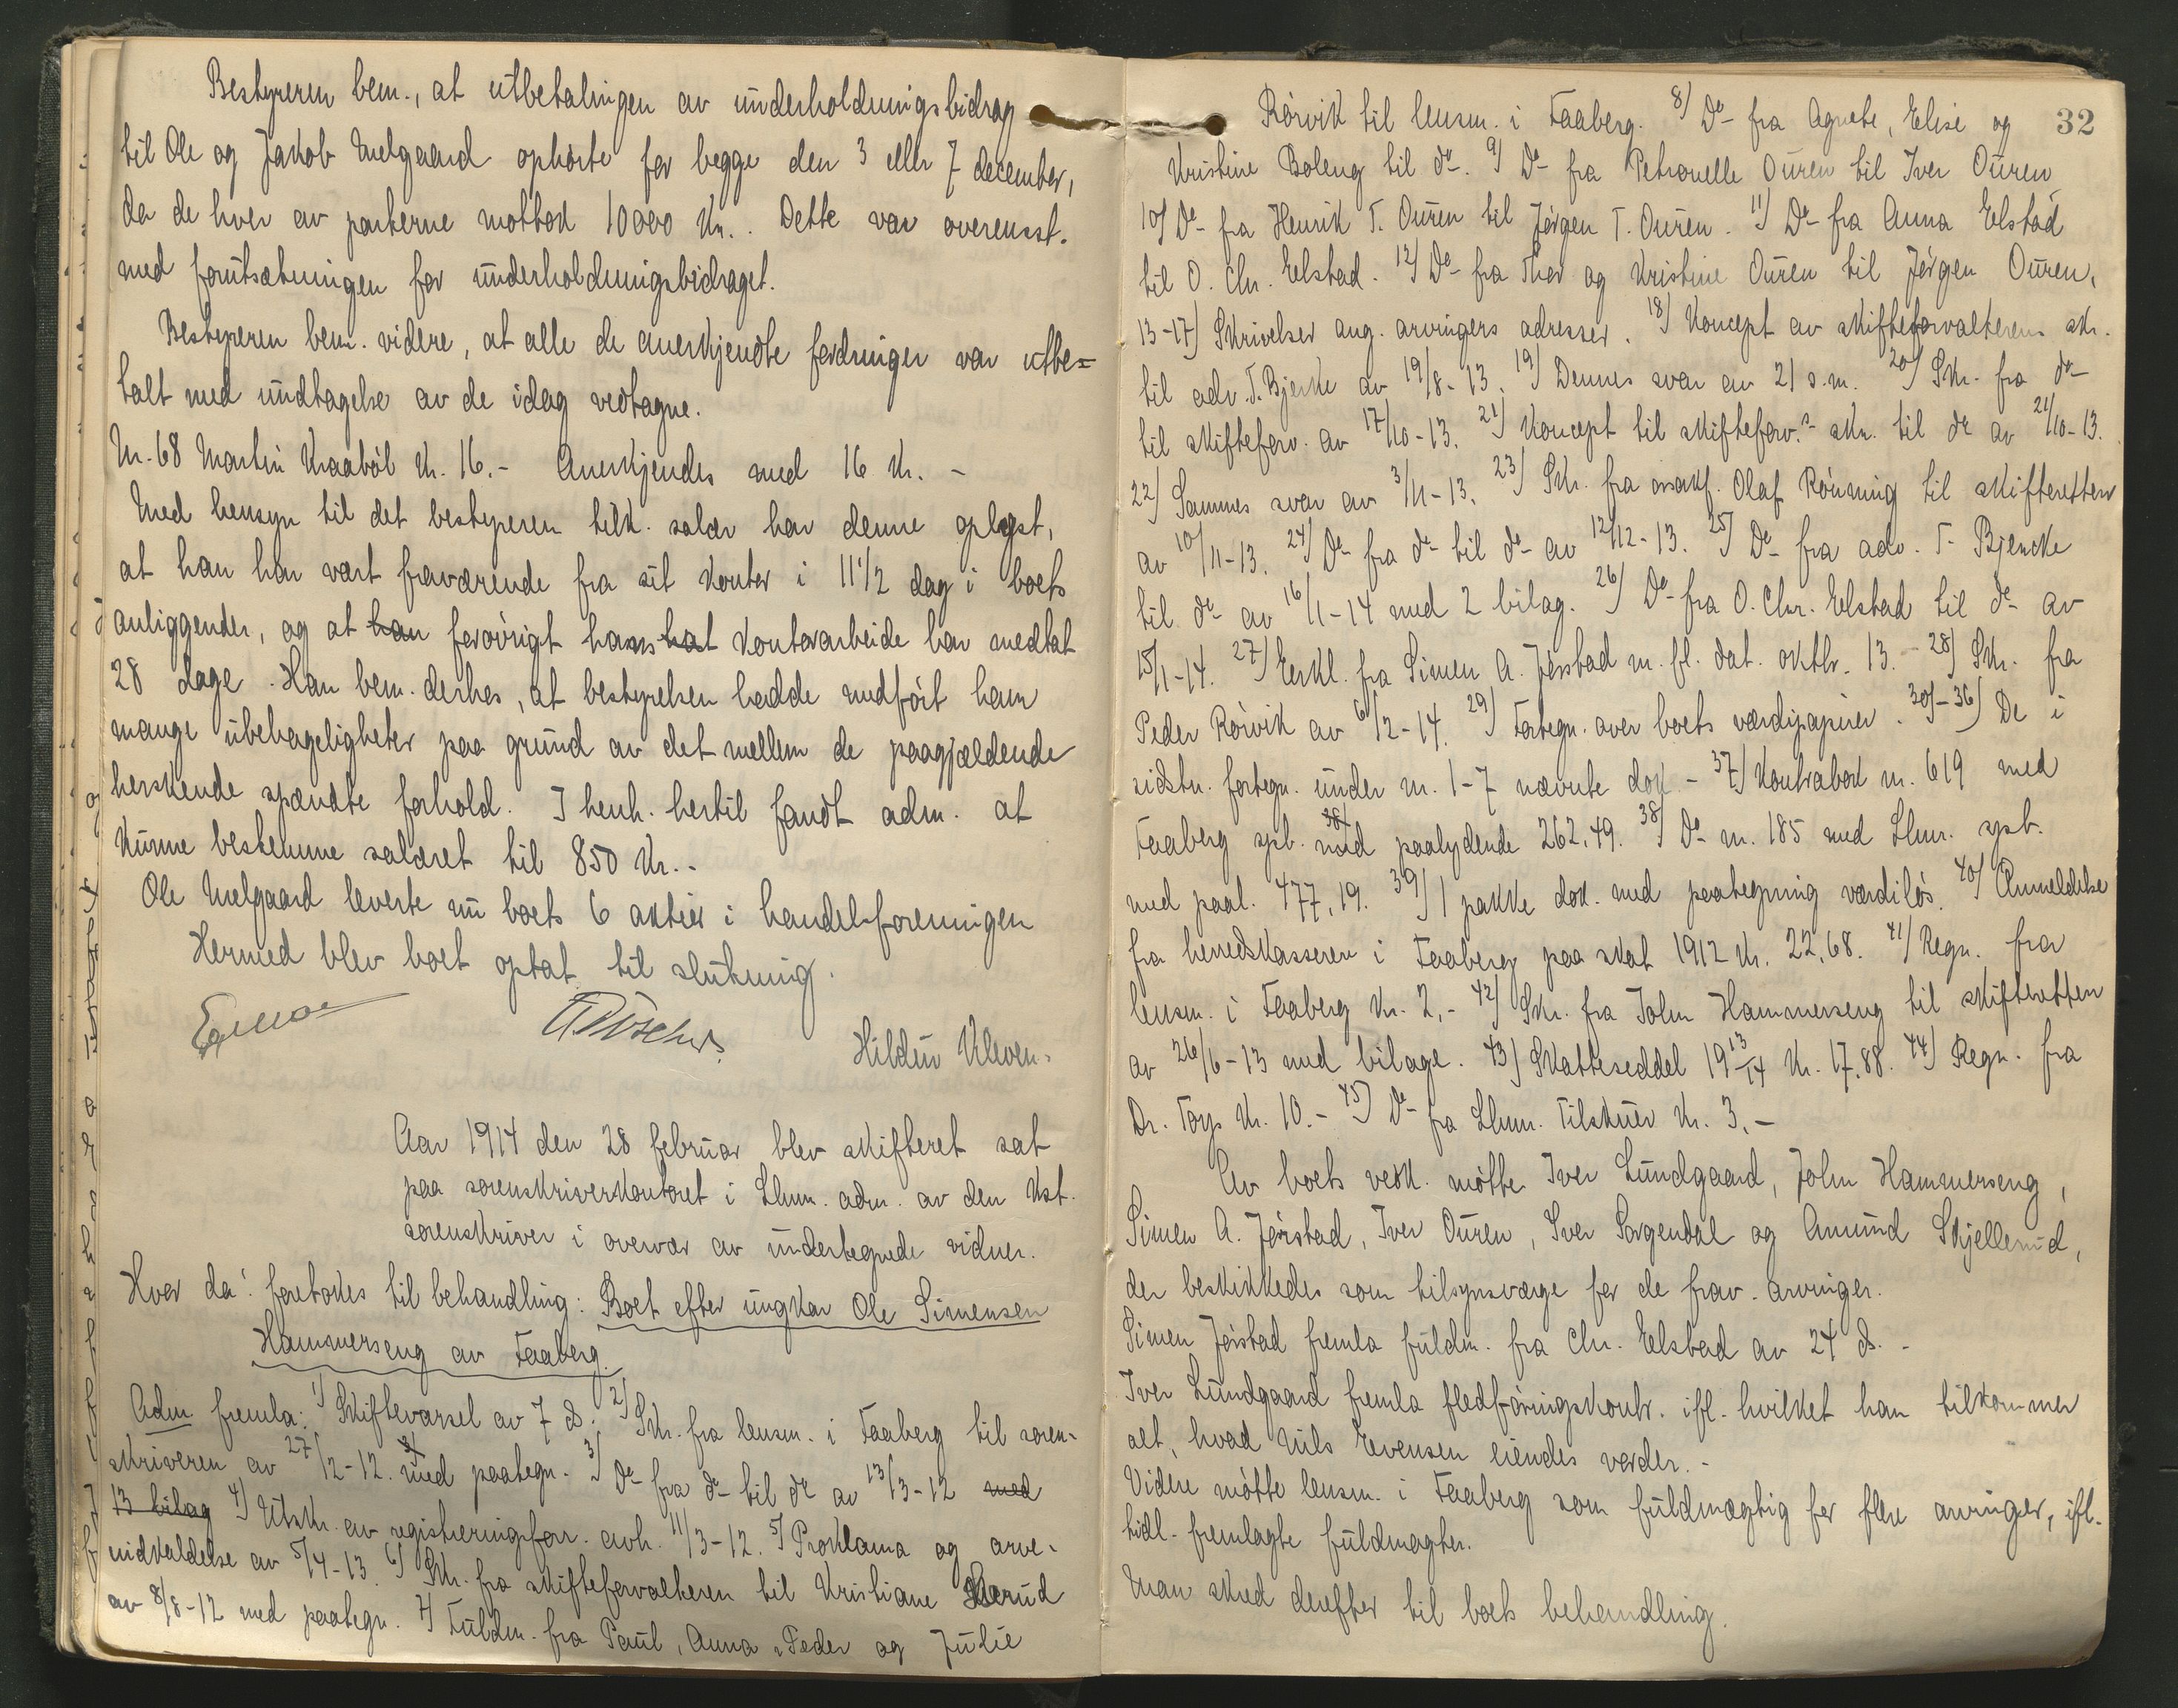 Bestyreren bem., at utbetalingen av underholdningsbidrag
til Ole og Jakob Melgaard ophørte for begge den 3 eller 7 december,
da de hver av parterne mottok 10000 Kr.. Dette var overensst.
med forutsætningen for underholdningsbidraget.
Bestyreren bem. videre, at alle de anerkjendte fordringer var utbe-
talt med undtagelse av de idag vedtagne.
Nr. 68 Martin Kraabøl Kr. 16.- Anerkjendes med 16 Kr. -
Med hensyn til det bestyreren tilk. salær har denne oplyst,
at han har vært fraværende fra sit kontor i 11 1/2 dag i boets
anliggender, og at han forøvrigt hans hat kontorarbeide har medtat
28 dage. Han bem. derhos, at bestyrelsen hadde medført ham
mange ubehageligheter paa grund av det mellem de paagjældende
herskende spændte forhold. I henh. hertil fandt adm. at
kunne bestemme salæret til 850 Kr..
Ole Melgaard leverte nu boets 6 aktier i handelsforeningen
Hermed blev boet optat til slutning.
Hildur Kleven.
Aar 1914 den 28 februar blev skifteret sat
paa sorenskriverkontoret i Lhmr. adm. av den kst.
sorenskriver i overvær av undertegnede vidner.
Hvor da: foretokes til behandling: Boet efter ungkar Ole Simensen
Hammerseng av Faaberg.
Adm fremla: 1) Skiftevarsel av 7 ds. 2) Skr. fra lensm. i Faaberg til soren-
skriveren av 27/12-12. 3) med paategn. 3) Do fra do til do av 13/3-12 med
13 bilag 4) Utskr. av registreringsforr. avh. 11/3-12. 5) Proklama og arve-
indkaldelse av 5/4-13. 6) Skr. fra skifteforvalteren til Kristiane
av 8/8-12 med paategn. 7) Fuldm. fra Paul, Anna, Peder og Julie
32
Rørvik til lensm. i Faaberg. 8) Do fra Agnete, Elise og
Kristine Boleng til do. 9) Do fra Petronelle Ouren til Iver Ouren
10) Do fra Henrik T. Ouren til Jørgen T. Ouren. 11) Do fra Anna Elstad
til O. Chr. Elstad. 12) Do fra Thor og Kristine Ouren til Jørgen Ouren,
13-17) Skrivelser ang. arvingers adresser. 18) Koncept av skifteforvalterens skr.
til adv. T. Bjerke av 19/8-13. 19) Dennes svar av 21 s.m. 20) Skr. fra do
til skifteforv. av 17/10-13. 21) Koncept til skifteforv.s skr. til do av 21/10-13.
22) Sammes svar av 3/11-13. 23) Skr. fra ovsakf. Olaf Rønning til skifteretten
av 10/11-13. 24) Do fra do til do av 12/12-13. 25) Do fra adv. T. Bjercke
til do av 16/1-14 med 2 bilag. 26) Do fra O. Chr. Elstad til do av
15/1-14. 27) Erkl. fra Simen A. Jørstad m. fl. dat. oktbr. 13. - 28) Skr. fra
Peder Rørvik av 6/2-14. 29) Fortegn. over boets værdipapirer. 30)-36) De i
sidstn. fortegn. under nr. 1-7 nævnte dok. - 37) Kontrabok nr. 619 med
Faaberg spb. 38) med paalydende 262,49. 38) Do nr. 185 med Lhmr. spb.
med paal. 477,19. 39) 1 pakke dok. med paategning værdiløs. 40) Anmeldelse
fra herredskasseren i Faaberg paa skat 1912 Kr. 22,68. 41) Regn. fra
lensm. i Faaberg Kr. 2,- 42) Skr. fra John Hammerseng til skifteretten
av 26/6-13 med bilage. 43) Skatteseddel 1913/14 Kr. 17,88. 44) Regn. fra
Dr. Torp Kr. 10.- 45) Do fra Lhmr. Tilskuer Kr. 3,-
Av boets vedk. møtte Iver Lundgaard, John Hammerseng,
Simen A. Jørstad, Iver Ouren, Iver Sorgendal og Amund Skjellerud,
der beskikkedes som tilsynsværge for de frav. arvinger.
Simen Jørstad fremla fuldm. fra Chr. Elstad av 24 ds. -
Iver Lundgaard fremla fledføringskontr. ifl. hvilket han tilkommer
alt, hvad Nils Evensen eiendes vorder. -
Videre møtte lensm. i Faaberg som fuldmægtig for flere arvinger, ifl.
tidl. fremlagte fuldmagter.
Man skred derefter til boets behandling.